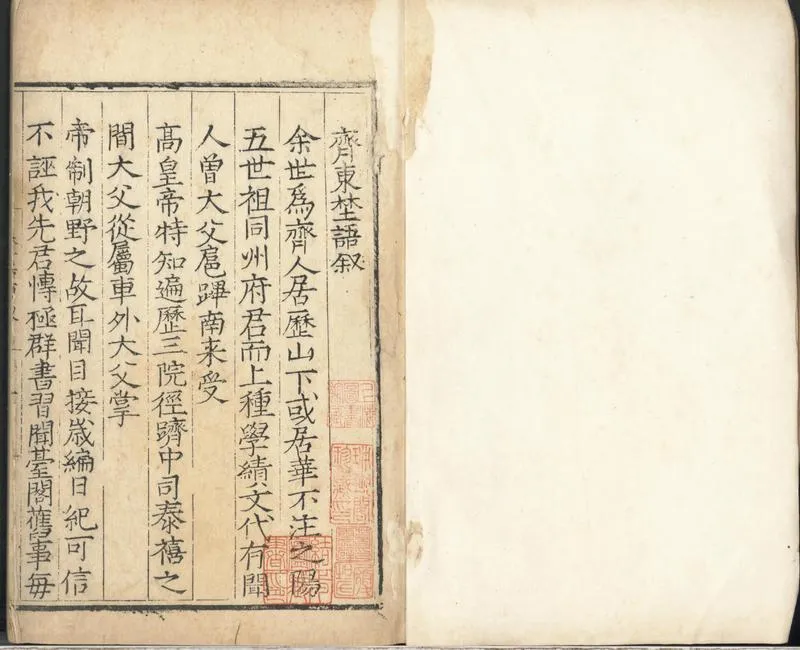 齊東埜語叙
余世爲齊人居歷山下或居華不注之陽
五世祖同州府君而上種學績文代有聞
人曾大父扈蹕南来受
髙皇帝特知遍歷三院徑躋中司泰禧之
間大父從屬車外大父掌
帝制朝野之故耳聞目接嵗編日紀可信
不誣我先君慱極群書習聞臺閣舊事毎